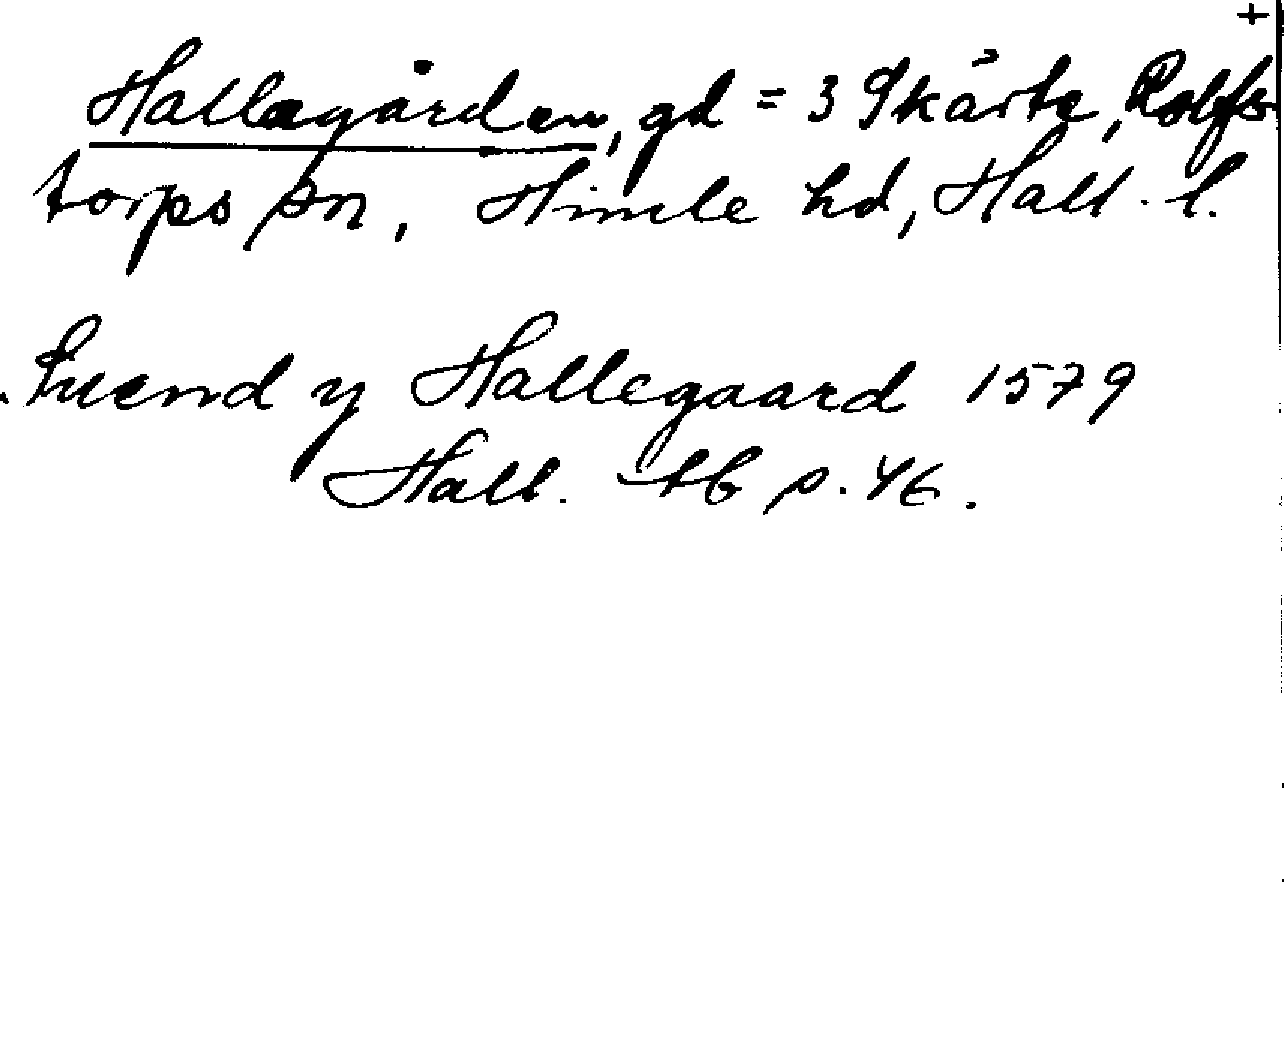 +
Hallagården, gd = 3 Skårte, Rolfs-
torps sn, Himle hd, Hall. l.
Suend y Hallegaard 1579
Hall. Ab s. 46.